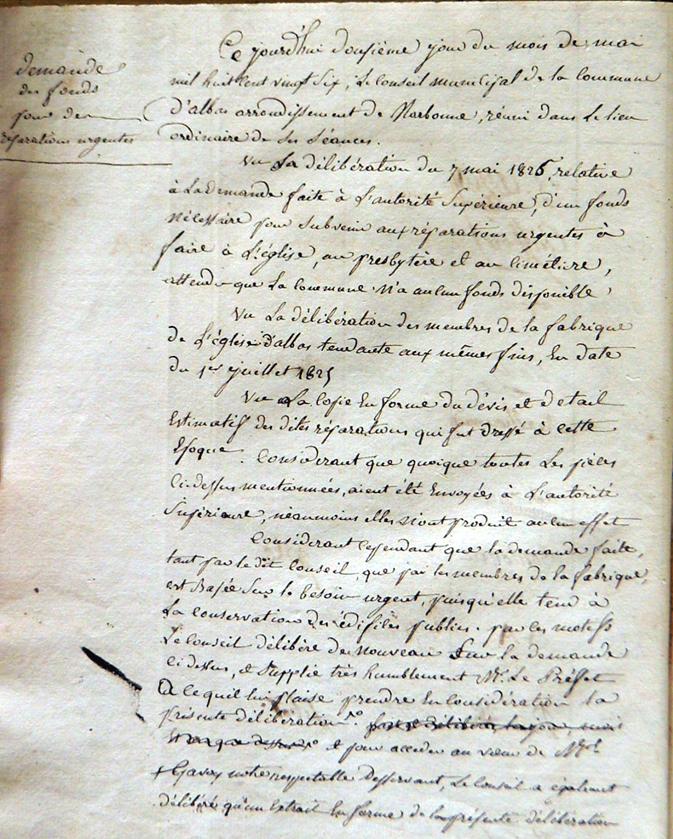 demande
des fonds
pour des
réparations urgentes
Ce jourd'hui dousième jour du mois de mai
mil huit cent vingt six, Le Conseil municipal de la commune
d'albas arrondissement de Narbonne, réuni dans le lieu
ordinaire de ses séances.
Vu La délibération du 7 mai 1826, relative
à La demande faite à L'autorité Supérieure, d'un fonds
nécessaire pour subvenir aux réparations urgentes à
faire à L'église, au presbytère et au Cimétière,
attendu que La Commune N'a aucun fonds disponible
Vu La délibération des membres de la fabrique
de L'église d'albas tendante aux mêmes fins, En date
du 1er juillet 1825
Vu La Copie En forme du dévis et détail
Estimatif des dites réparations qui fut dressé à cette
Epoque. Considérant que quoique toutes Les pièces
Ci-dessus mentionnées, aient été Envoyées à L'autorité
Supérieure, néanmoins elles n'ont produit aucun effet
Considérant Cependant que la demande faite,
tant par le dit Conseil, que par les membres de la fabrique,
est Basée Sur le besoin urgent, puisqu'elle tend à
La conservation des édifices publics. par ces motifs
Le Conseil délibère de nouveau Sur la demande
Ci-dessus, et Supplie très humblement Mr. Le Préfet
à Ce qu'il lui plaise prendre En Considération la
présente délibération.
et pour acceder au vœu de Mr.
Gavoy notre respectable Desservant, Le Conseil a également
délibéré qu'un Extrait En forme de la présente délibération